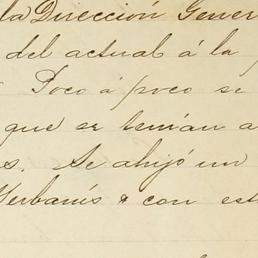 la Dirección Gener
del actual á la p
Poco á poco se
que se tenían a
s. Se ahijó un
Herbanís & con est